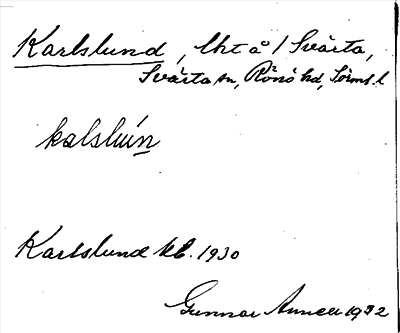 Karlslund, lht å / Svärta,
Svärta sn, Rönö hd, Sörml. l
kalslún
Karlslund kb. 1930
Gunnar Annell 1932